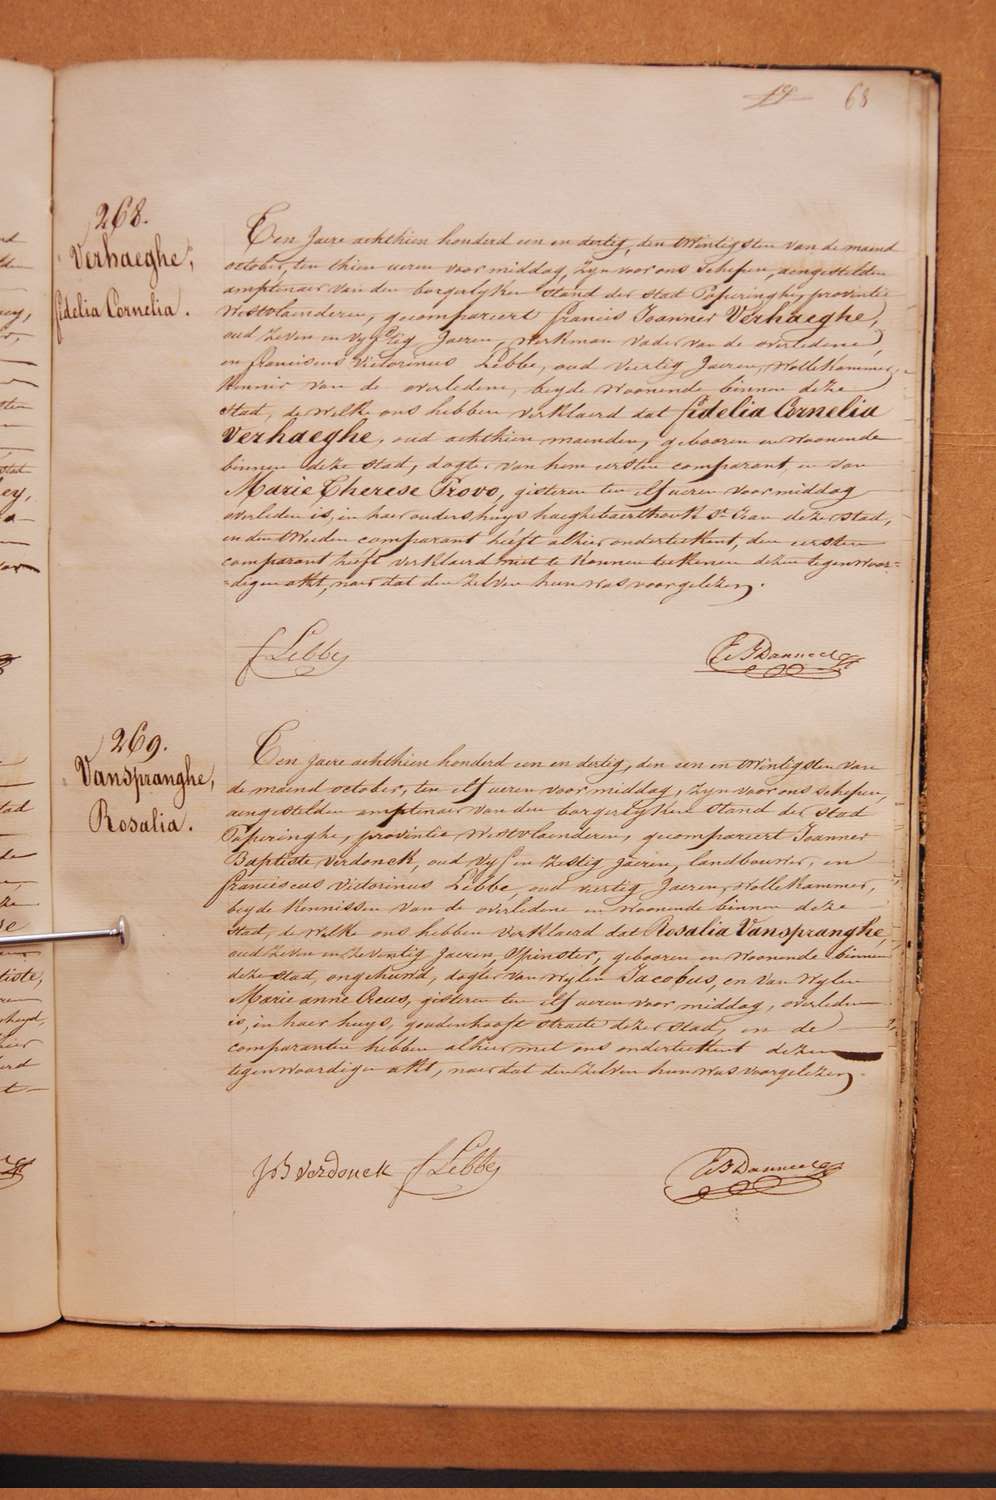 68
268.
Verhaeghe,
fidelia Cornelia.
Ten Jaere achthien honderd een en dertig, den twintigsten van de maend
october, ten thien ueren voor middag, zyn voor ons schepen, aengestelden
amptenaer van den borgerlyken stand der stad Poperinghe, provintie
Westvlaenderen, gecompareert francis Joannes Verhaeghe,
oud zeven en vyftig Jaeren, werkman vader van de overledene,
en franciscus Victorinus Lebbe, oud viertig Jaeren, Wollekammer,
kennis van de overledene, beyde woonende binnen deze
stad, de welke ons hebben verklaerd dat fidelia Cornelia
Verhaeghe, oud achthien maenden, gebooren en woonende
binnen deze stad, dogter van hem eersten comparant, en van
Marie Therese Provo, gisteren ten elf ueren voor middag
overleden is, in haer ouders huys haeghebaerthoek St Jan dezer stad,
en den tweeden comparant heeft alhier onderteekent, den eersten
comparant heeft verklaerd niet te konnen teekenen dezen tegenwoor=
=digen akt, naer dat den zelven hun was voorgelezen.
f Lebbe
269.
Vanspranghe,
Rosalia.
Ten Jaere achthien honderd een en dertig, den een en twintigsten van
de maend october, ten elf ueren voor middag, zyn voor ons schepen,
aengestelden amptenaer van den borgerlyken stand der stad
Poperinghe, provintie Westvlaenderen, gecompareert Joannes
Baptiste Verdonck, oud vyf en zestig jaeren, landbouwer, en
franciscus Victorinus Lebbe, oud viertig Jaeren, Wollekammer,
beyde kennissen van de overledene en woonende binnen deze
stad, de welke ons hebben verklaerd dat Rosalia Vanspranghe,
oud zeven en zeventig Jaeren, Spinster, gebooren en woonende binnen
deze stad, ongehuwd, dogter van wylen Jacobus, en van wylen
Marie anne Reus, gisteren ten elf ueren voor middag, overleden
is, in haer huys, goudenhooft straete dezer stad, en de
comparanten hebben alhier met ons onderteekent dezen
tegenwoordigen akt, naer dat den zelven hun was voorgelezen.
J B Verdonck f Lebbe